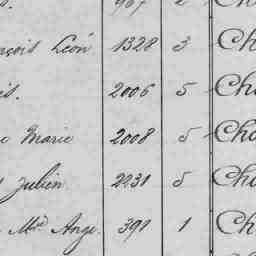 967 2 Ch
nçois Léon 1328 3 Ch
is. 2006 5 Cha
Marie 2008 5 Cha
Julien 2231 5 Cha
Mie Ange. 391 1 Ch